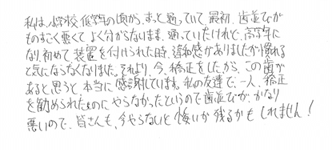 私は、小学校低学年の頃から、ずっと通っていて最初、歯並びが
ものすごく悪くてよく分からないまま、通っていたけれど、高学年に
なり、初めて装置を付けられた時、違和感がありましたが慣れる
と気にならなくなりました。それより、今、矯正をしたから、この歯が
あると思うと本当に感謝しています。私の友達で一人、矯正
を勧められたのにやらなかったというので歯並びが、かなり
悪いので、皆さんも、今やらないと悔いが残るかもしれません!